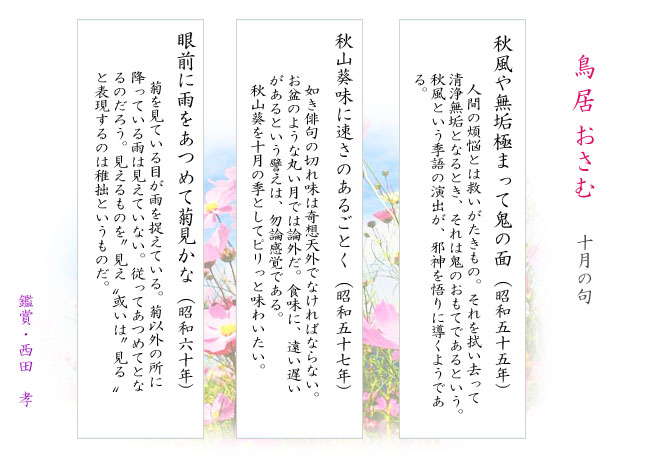 鳥居おさむ　十月の句
秋風や無垢極まって鬼の面（昭和五十五年）
人間の煩悩とは救いがたきもの。それを拭い去って
清浄無垢となるとき、それは鬼のおもてであるという。
秋風という季語の演出が、邪神を悟りに導くようであ
る。
秋山葵味に速さのあるごとく（昭和五十七年）
如き俳句の切れ味は奇想天外でなければならない。
お盆のような丸い月では論外だ。食味に、遠い遅い
があるという譬えは、勿論感覚である。
秋山葵を十月の季としてピリっと味わいたい。
眼前に雨をあつめて菊見かな（昭和六十年）
菊を見ている目が雨を捉えている。菊以外の所に
降っている雨は見えていない。従ってあつめてとな
るのだろう。見えるものを〝見え〟或いは〝見る〟
と表現するのは稚拙というものだ。
鑑賞・西田　孝